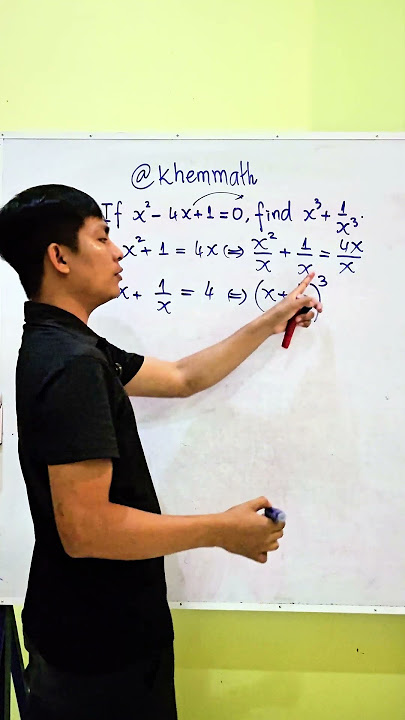 @khemmath
If x² - 4x + 1 = 0, find x³ + 1/x³.
x² + 1 = 4x ⇔ x²/x + 1/x = 4x/x
x + 1/x = 4 ⇔ (x + )³